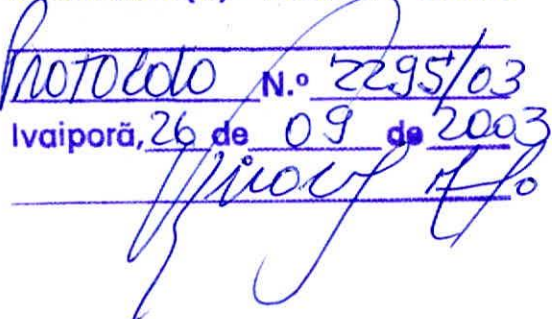 PROTOCOLO N.º 2295/03
Ivaiporã, 26 de 09 de 2003